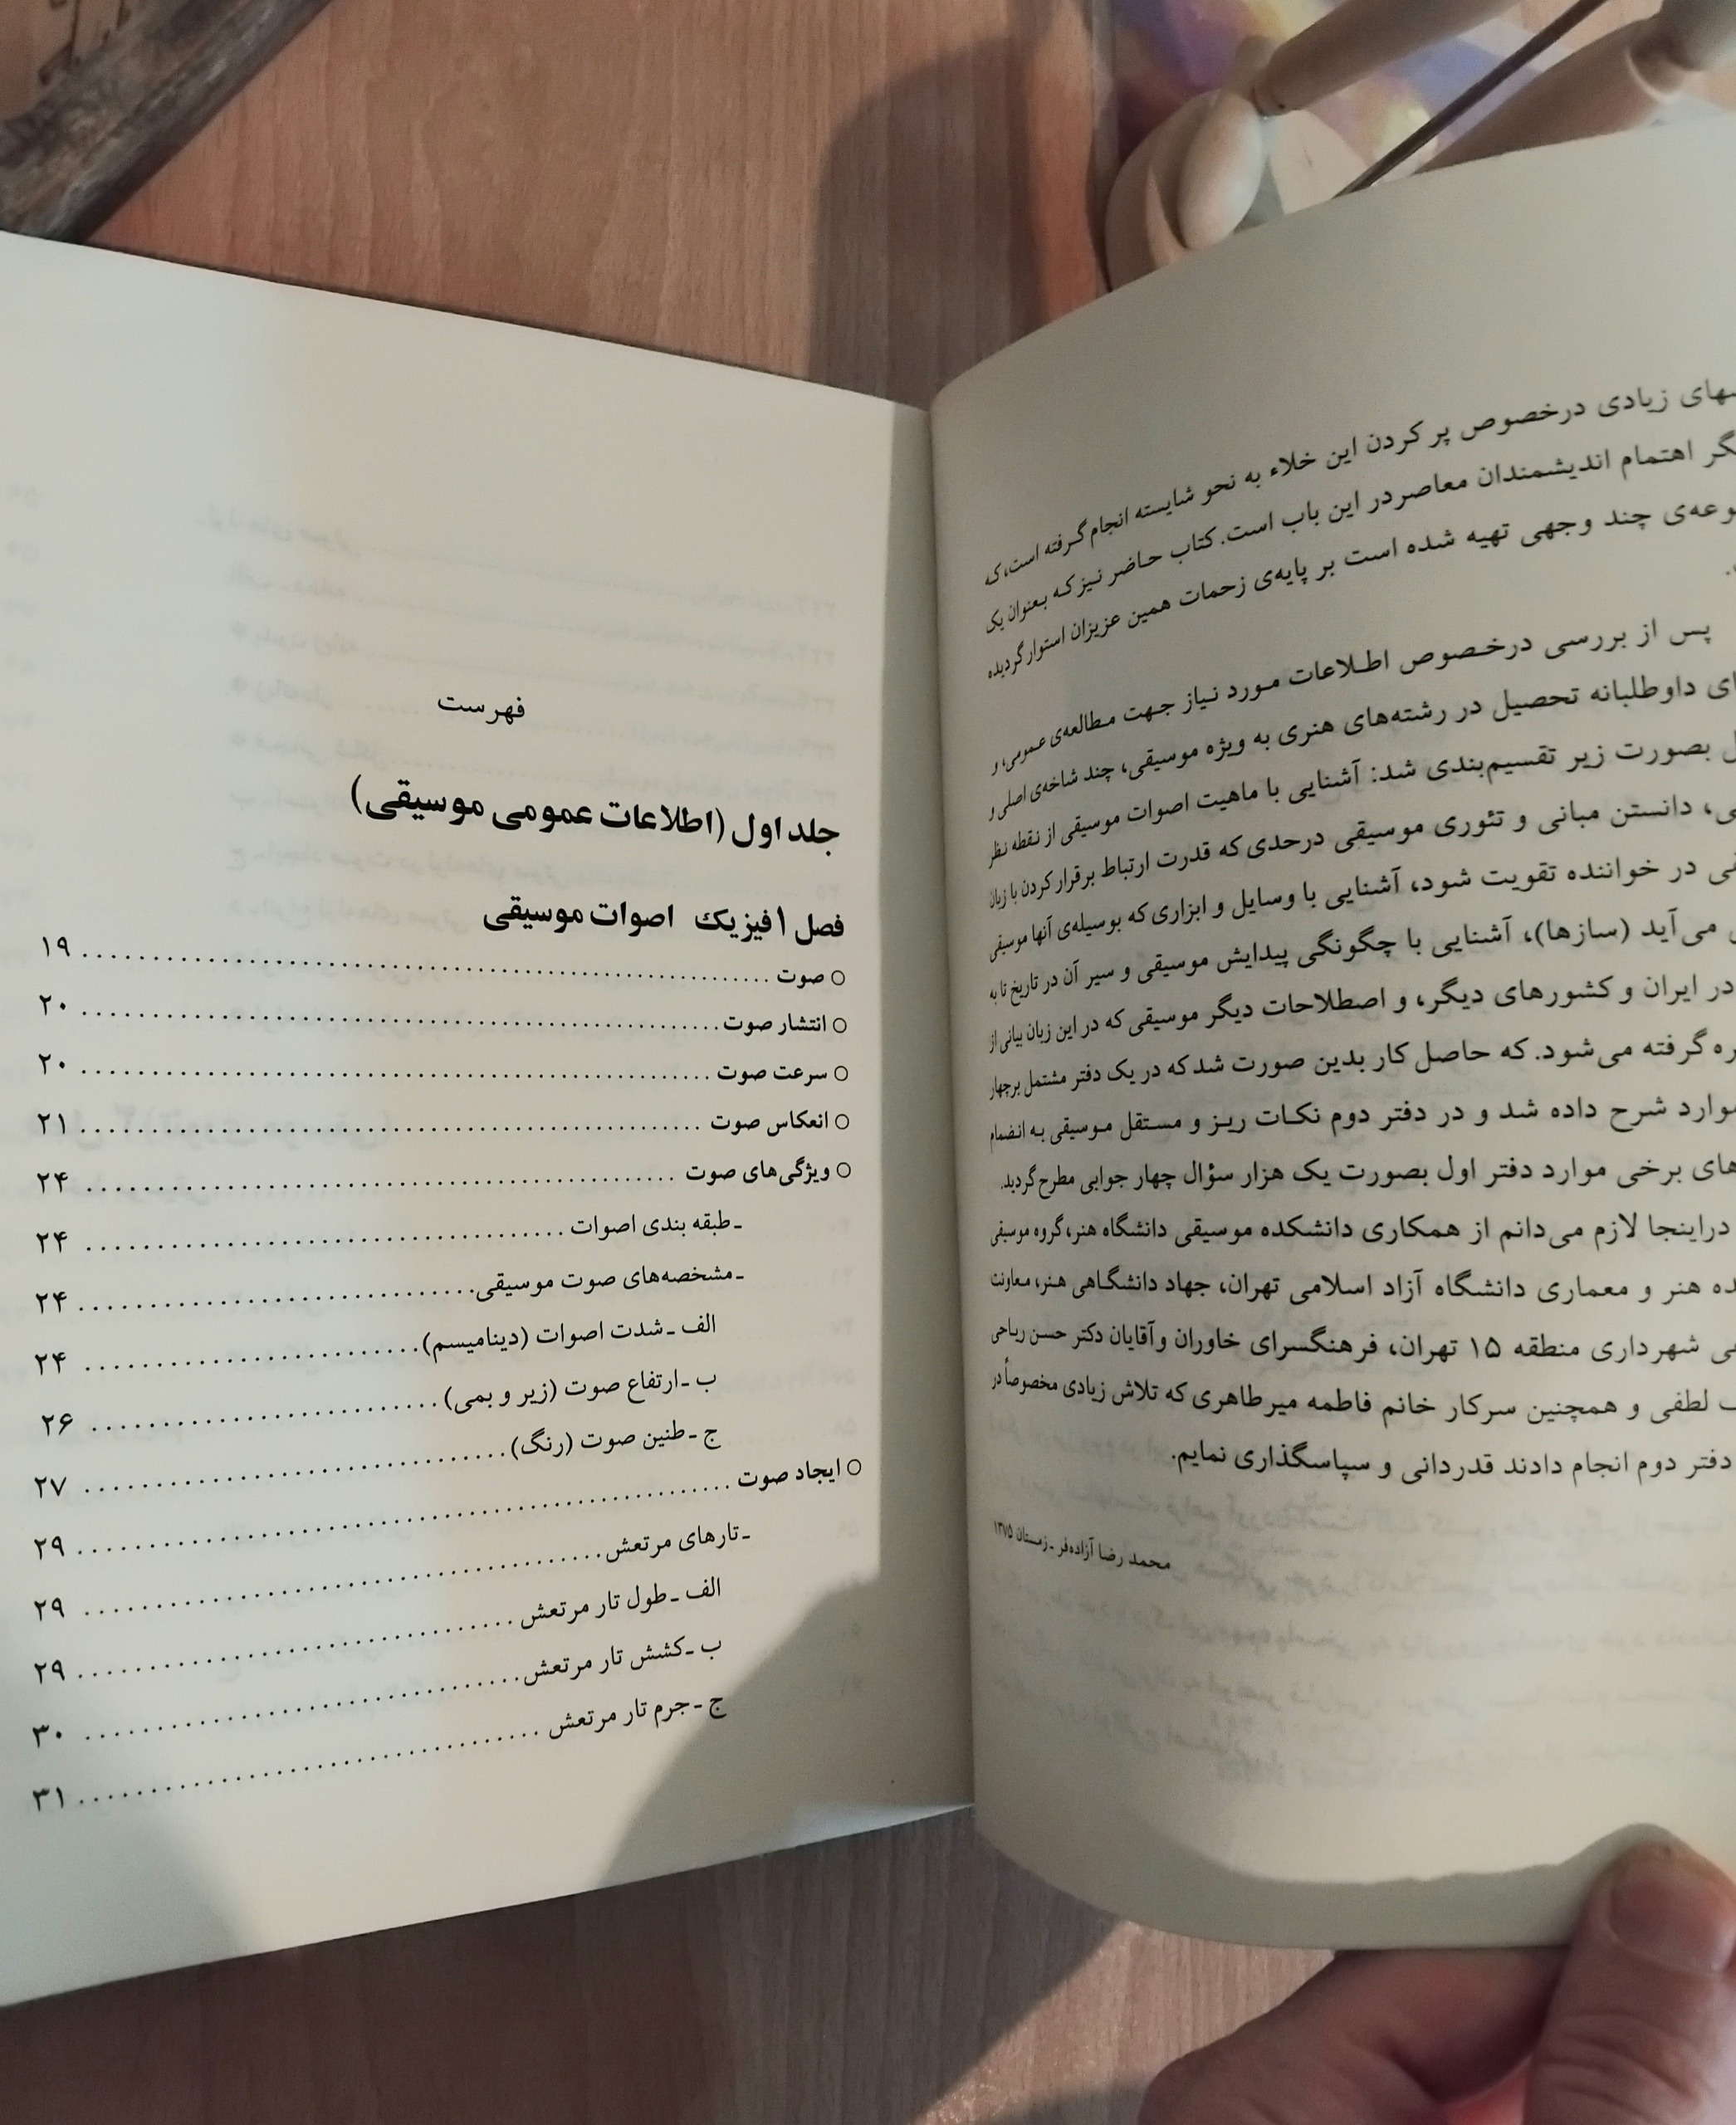 زیادی درخصوص پر کردن این خلاء به نحو شایسته انجام گرفته است، که
اهتمام اندیشمندان معاصر در این باب است. کتاب حاضر نیز که بعنوان یک
چند وجهی تهیه شده است بر پایه‌ی زحمات همین عزیزان استوار گردیده
پس از بررسی درخصوص اطلاعات مورد نیاز جهت مطالعه‌ی عمومی، و
داوطلبانه تحصیل در رشته‌های هنری به ویژه موسیقی، چند شاخه‌ی اصلی و
بصورت زیر تقسیم‌بندی شد: آشنایی با ماهیت اصوات موسیقی از نقطه نظر
دانستن مبانی و تئوری موسیقی درحدی که قدرت ارتباط برقرار کردن با زبان
در خواننده تقویت شود، آشنایی با وسایل و ابزاری که بوسیله‌ی آنها موسیقی
می‌آید (سازها)، آشنایی با چگونگی پیدایش موسیقی و سیر آن در تاریخ تا به
در ایران و کشورهای دیگر، و اصطلاحات دیگر موسیقی که در این زبان بیانی از
گرفته می‌شود. که حاصل کار بدین صورت شد که در یک دفتر مشتمل برچهار
موارد شرح داده شد و در دفتر دوم نکات ریز و مستقل موسیقی به انضمام
برخی موارد دفتر اول بصورت یک هزار سؤال چهار جوابی مطرح گردید.
دراینجا لازم می‌دانم از همکاری دانشکده موسیقی دانشگاه هنر، گروه موسیقی
هنر و معماری دانشگاه آزاد اسلامی تهران، جهاد دانشگاهی هنر، معاونت
شهرداری منطقه ۱۵ تهران، فرهنگسرای خاوران و آقایان دکتر حسن ریاحی
لطفی و همچنین سرکار خانم فاطمه میرطاهری که تلاش زیادی مخصوصاً در
دفتر دوم انجام دادند قدردانی و سپاسگذاری نمایم.
محمد رضا آزاده‌فر ـ زمستان ۱۳۷۵
فهرست
جلد اول (اطلاعات عمومی موسیقی)
فصل ۱ فیزیک اصوات موسیقی
○ صوت ........ ۱۹
○ انتشار صوت ........ ۲۰
○ سرعت صوت ........ ۲۰
○ انعکاس صوت ........ ۲۱
○ ویژگی‌های صوت ........ ۲۴
ـ طبقه بندی اصوات ........ ۲۴
ـ مشخصه‌های صوت موسیقی ........ ۲۴
الف ـ شدت اصوات (دینامیسم) ........ ۲۴
ب ـ ارتفاع صوت (زیر و بمی) ........ ۲۶
ج ـ طنین صوت (رنگ) ........ ۲۷
○ ایجاد صوت ........ ۲۹
ـ تارهای مرتعش ........ ۲۹
الف ـ طول تار مرتعش ........ ۲۹
ب ـ کشش تار مرتعش ........ ۳۰
ج ـ جرم تار مرتعش ........ ۳۱